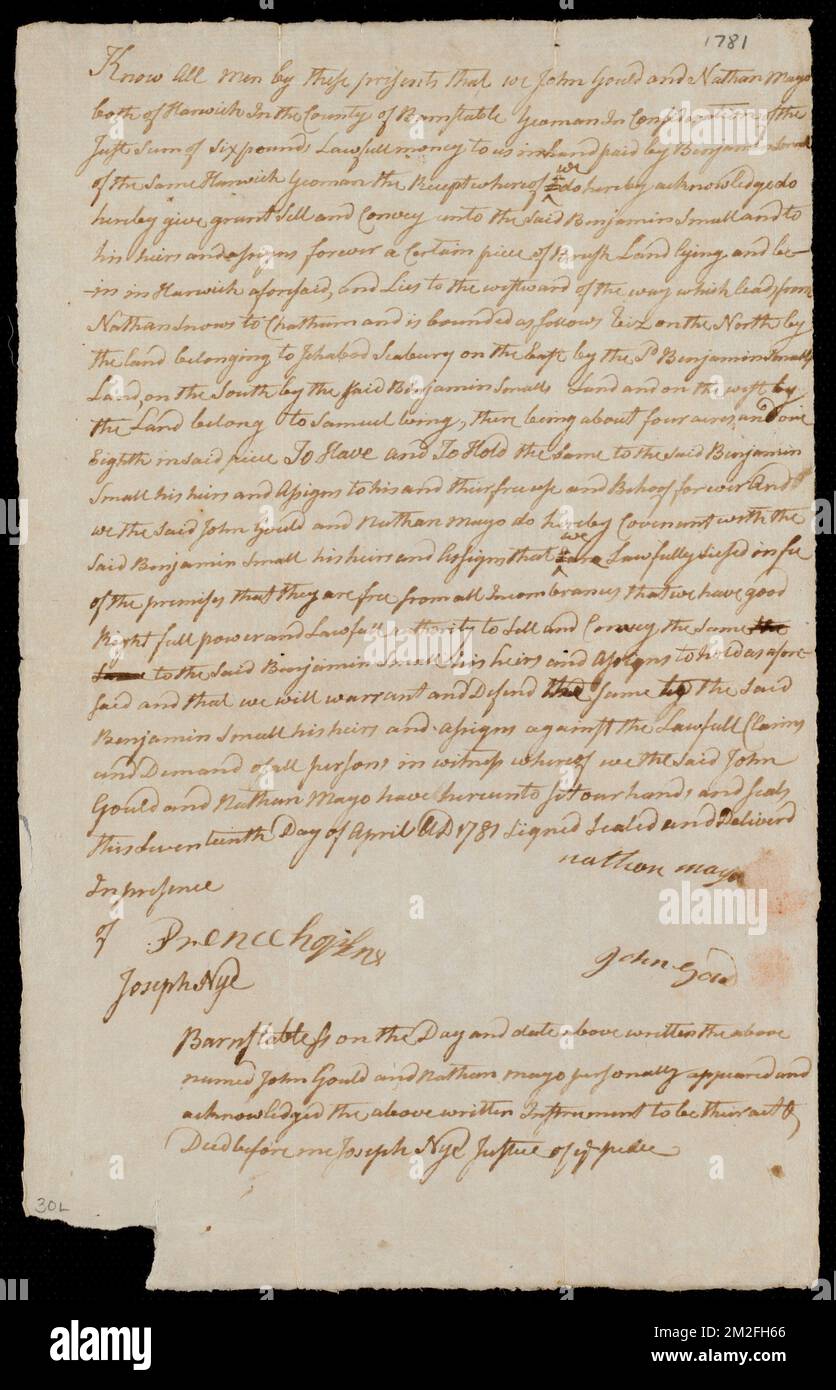 1781
Know All men by these presents that we John Gould and Nathan Mayo
both of Harwich In the County of Barnstable Yeoman In Consideration of the
Just Sum of Six pounds Lawfull money to us in hand paid by Benjamin Small
of the Same Harwich Yeoman the Recept whereof we do hereby acknowledge do
hereby give grant Sell and Convey unto the Said Benjamin Small and to
his heirs and assigns forever a Certain piece of Brush Land lying and be-
-in in Harwich aforesaid, and Lies to the westward of the way which leads from
Nathan Snows to Chatham and is bounded as follows Viz on the North by
the land belonging to Ichabod Seabury on the East by the Sd Benjamin Smalls
Land, on the South by the said Benjamin Smalls Land and on the west by
the Land belong to Samuel being, there being about four acres and one
Eighth in said piece To Have and To Hold the Same to the Said Benjamin
Small his heirs and Assigns to his and their free use and Behoof forever And
we the Said John Gould and Nathan Mayo do hereby Covenant with the
Said Benjamin Small his heirs and Assigns that we are Lawfully Siesed in fee
of the premises that they are free from all Incombrances that we have good
Right full power and Lawfull authority to Sell and Convey the Same the
Same to the Said Benjamin Small his heirs and Assigns to hold as afore
said and that we will warrant and Defend the Same to the Said
Benjamin Small his heirs and assigns against the Lawfull Claims
and Demand of all persons in witness whereof we the Said John
Gould and Nathan Mayo have hereunto Set our hands and Seals
this Seventeenth Day of April AD 1781 Signed Sealed and Deliverd
nathan mayo
In presence
of Prence
John
Joseph Nye
Barnstable Ss on the Day and date above written the above
named John Gould and Nathan Mayo personally appeared and
acknowledged the above written Instrument to be their act &
Deed before me Joseph Nye Justice of ye peace
30L
alamy
alamy
Image ID: 2M2FH66
www.alamy.com